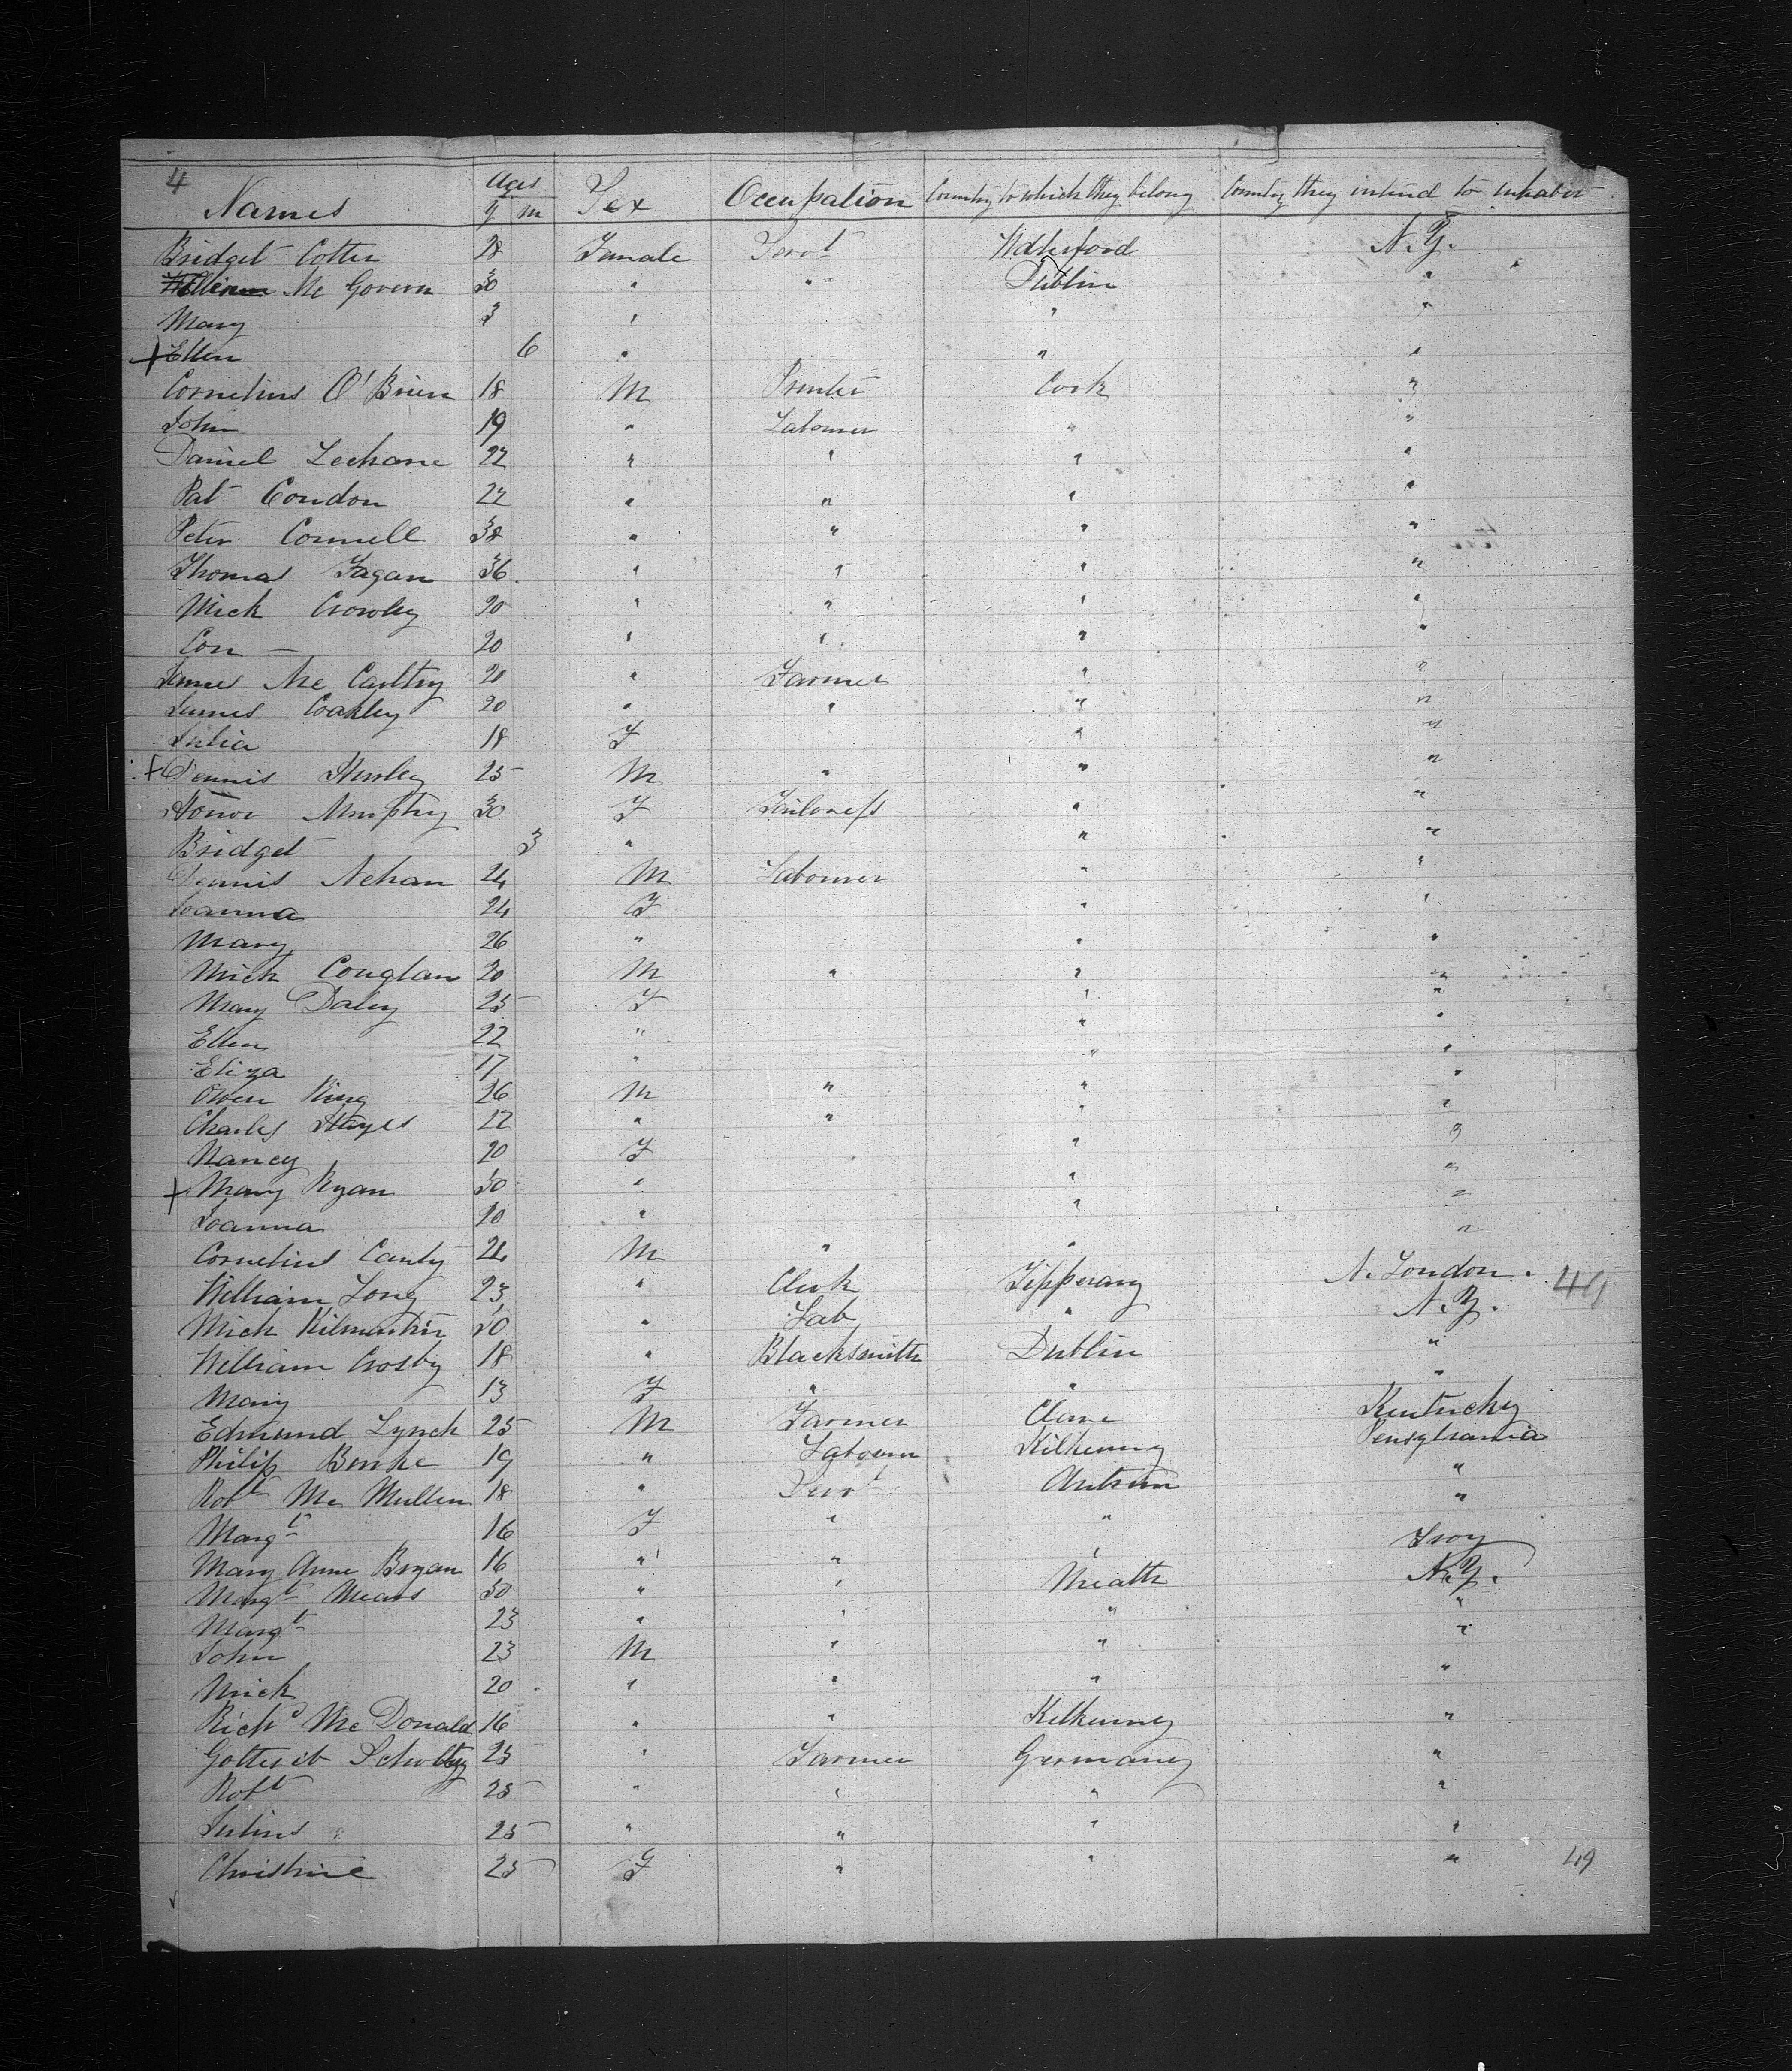 4
Names Ages y m Sex Occupation Country to which they belong Country they intend to inhabit
Bridget Cotter 28 Female Servt Waterford N.Y.
Mc Govern 30 " " Dublin "
Mary 3 " " "
+ Ellen 6 " " "
Cornelius O'Brien 18 M Printer Cork "
John 19 " Labourer " "
Daniel Leehane 22 " " " "
Pat Condon 22 " " " "
Peter Connell 38 " " " "
Thomas Fagan 36 " " " "
Mick Crowley 20 " " " "
Con — 20 " " " "
James Mc Carthy 20 " Farmer " "
James Coakley 20 " " " "
Julia 18 F " "
+ Dennis Hurley 25 M " " "
Murphy 30 F Tailoress " "
Bridget 3 " " "
Dennis Nehan 24 M Labourer " "
Joanna 24 F " "
Mary 26 " " "
Mick Couglan 20 M " " "
Mary Daley 25 F " "
Ellen 22 " " "
Eliza 17 " " "
Owen King 26 M " " "
Charles Hayes 22 " " " "
Nancy 20 F " "
+ Mary Ryan 30 " " "
Joanna 20 " " "
Cornelius Canty 24 M " " "
William Long 23 " Clerk Tipperary N. London.
Mick Kilmartin 30 " Lab " N.Y.
William Crosby 18 " Blacksmith Dublin "
Mary 13 F " " "
Edmund Lynch 25 M Farmer Clare Kentucky
Philip Burke 19 " Labourer Kilkenny Pensylvania
Robt Mc Mullen 18 " Servt Antrim "
Margt 16 F " " "
Mary Anne Bryan 16 " " " Troy
Margt Mears 30 " " Meath N.Y.
Margt 23 " " " "
John 23 M " " "
Mick 20 " " " "
Richd Mc Donald 16 " " Kilkenny "
Gottleib 25 " Farmer Germany "
Robt 25 " " " "
Julius 25 " " " "
Christine 25 F " " " 49